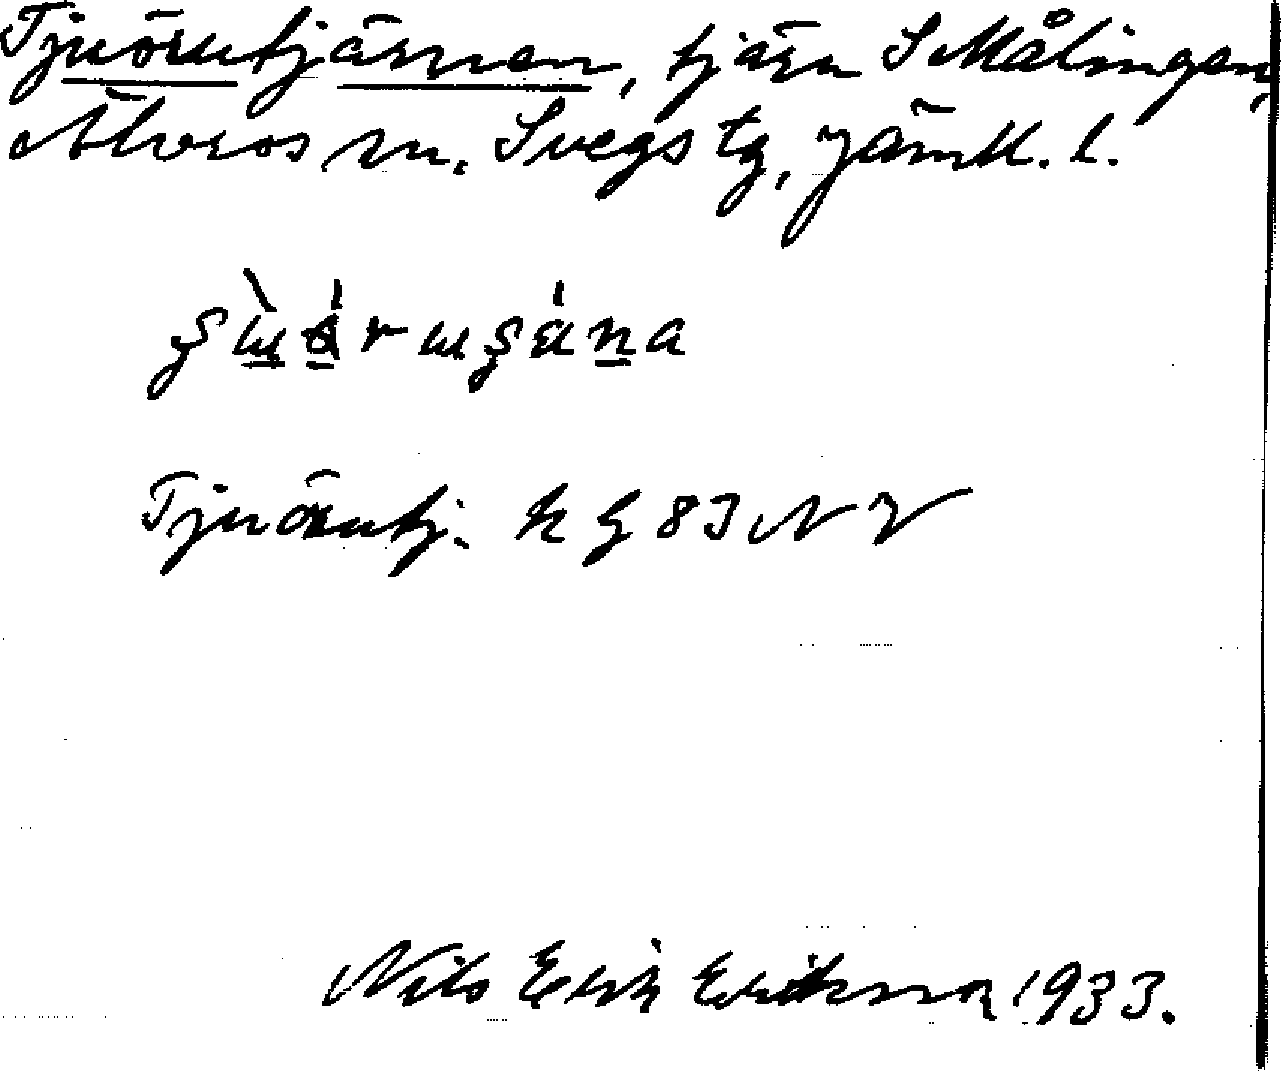 Tjuörutjärnen, tjärn S Målingen,
Älvros sn. Svegs tg, Jämtl. l.
Tjuörutj. k g 83 NV
Nils Erik Eriksson 1933.